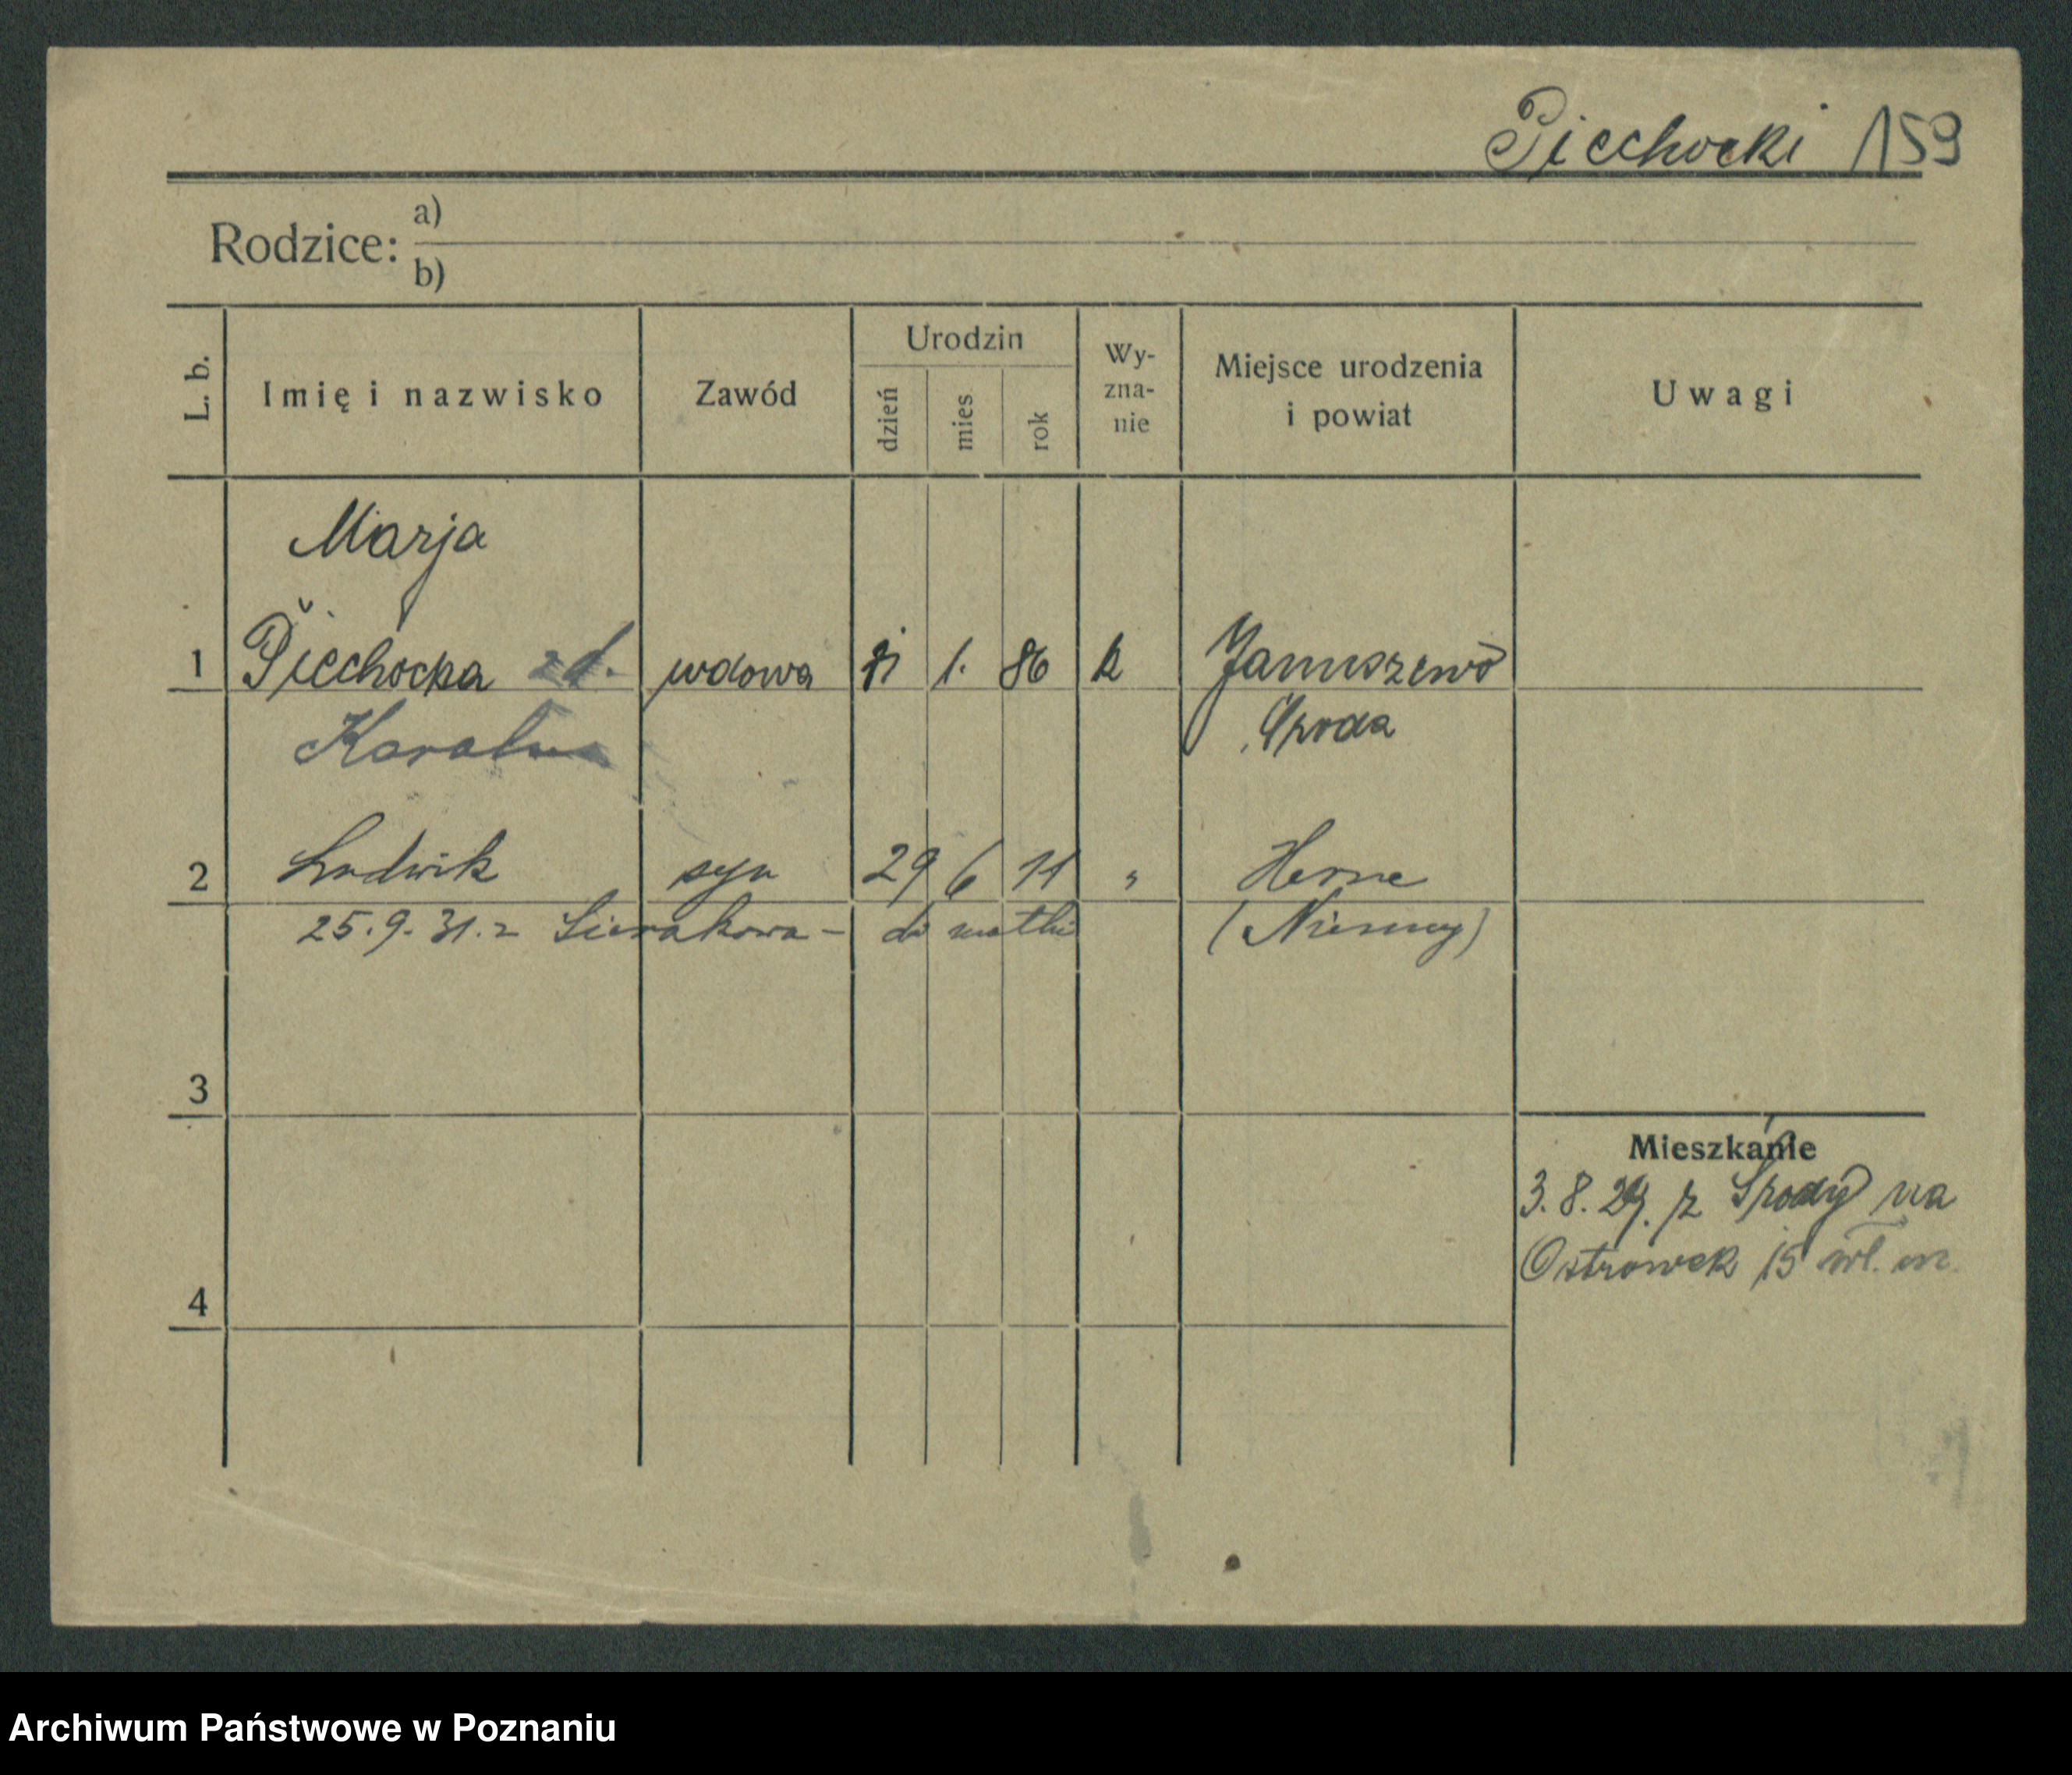 Piechocki 159
Rodzice: a)
b)
L. b. Imię i nazwisko Zawód Urodzin dzień mies rok Wy-zna-nie Miejsce urodzenia i powiat Uwagi
Marja
1 Piechocka zd. wdowa 1. 86 k Januszewo
Środa
2 Ludwik syn 29 6 11 " Herne
25.9.31. z Sierakowa - do matki (Niemcy)
3
Mieszkanie
3.8.29. z Środy na
Ostrówek 15 wł. m.
4
Archiwum Państwowe w Poznaniu